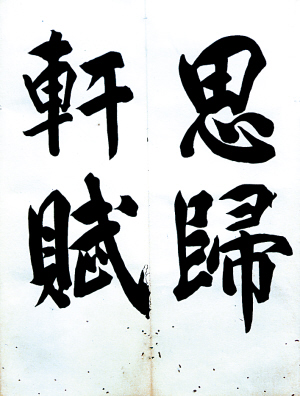 思歸
軒賦